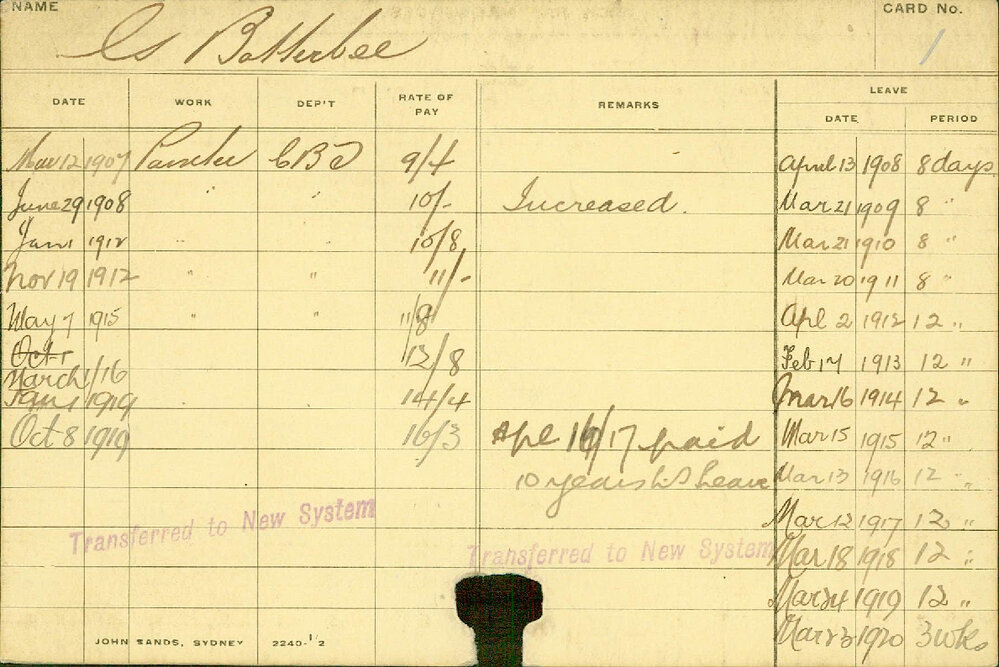 NAME
CARD No.
Cs Batterbee
1
DATE WORK DEP'T RATE OF PAY REMARKS LEAVE
DATE PERIOD
Mar 12 1907 Painter CBD 9/4 April 13 1908 8 days
June 29 1908 " " 10/- Increased. Mar 21 1909 8 "
Jan 1 1912 " " 10/8 Mar 21 1910 8 "
Nov 19 1912 " " 11/- Mar 20 1911 8 "
May 7 1915 " " 11/8 Apl 2 1912 12 "
Oct 1
March 1/16 13/8 Feb 17 1913 12 "
Jan 1 1919 14/4 Mar 16 1914 12 "
Oct 8 1919 16/3 Apl 16/17 paid Mar 15 1915 12 "
10 years Leave Mar 13 1916 12 "
Transferred to New System Mar 12 1917 12 "
Transferred to New System Mar 18 1918 12 "
Mar 24 1919 12 "
Mar 23 1920 3 wks
JOHN SANDS, SYDNEY 2240-1/2